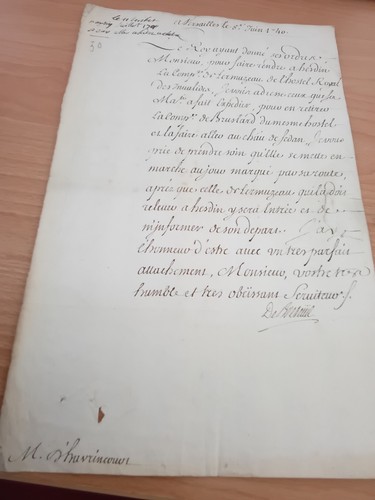 A Versailles le 8e Juin 1740.
30
Le Roy ayant donné ses ordres
Monsieur, pour faire rendre a hesdin
La Compie. de Lermuzeau de l'hostel Royal
des Invalides, Je vous adresse ceux que Sa
Maté. a fait Expedier pour en retirer
La Compe. de Brustard du mesme hostel
et la faire aller au chau de Sedan. Je vous
prie de prendre soin qu'elle se mette en
marche au jour marqué par sa route,
aprés que celle de Lermuzeau qui la doit
relever a hesdin y sera Entrée et de
m'informer de son depart. J'ay
l'honneur d'estre avec un tres parfait
attachement, Monsieur, vostre tres
humble et tres obëissant Serviteur.
De Breteuil
M. D'havrincourt